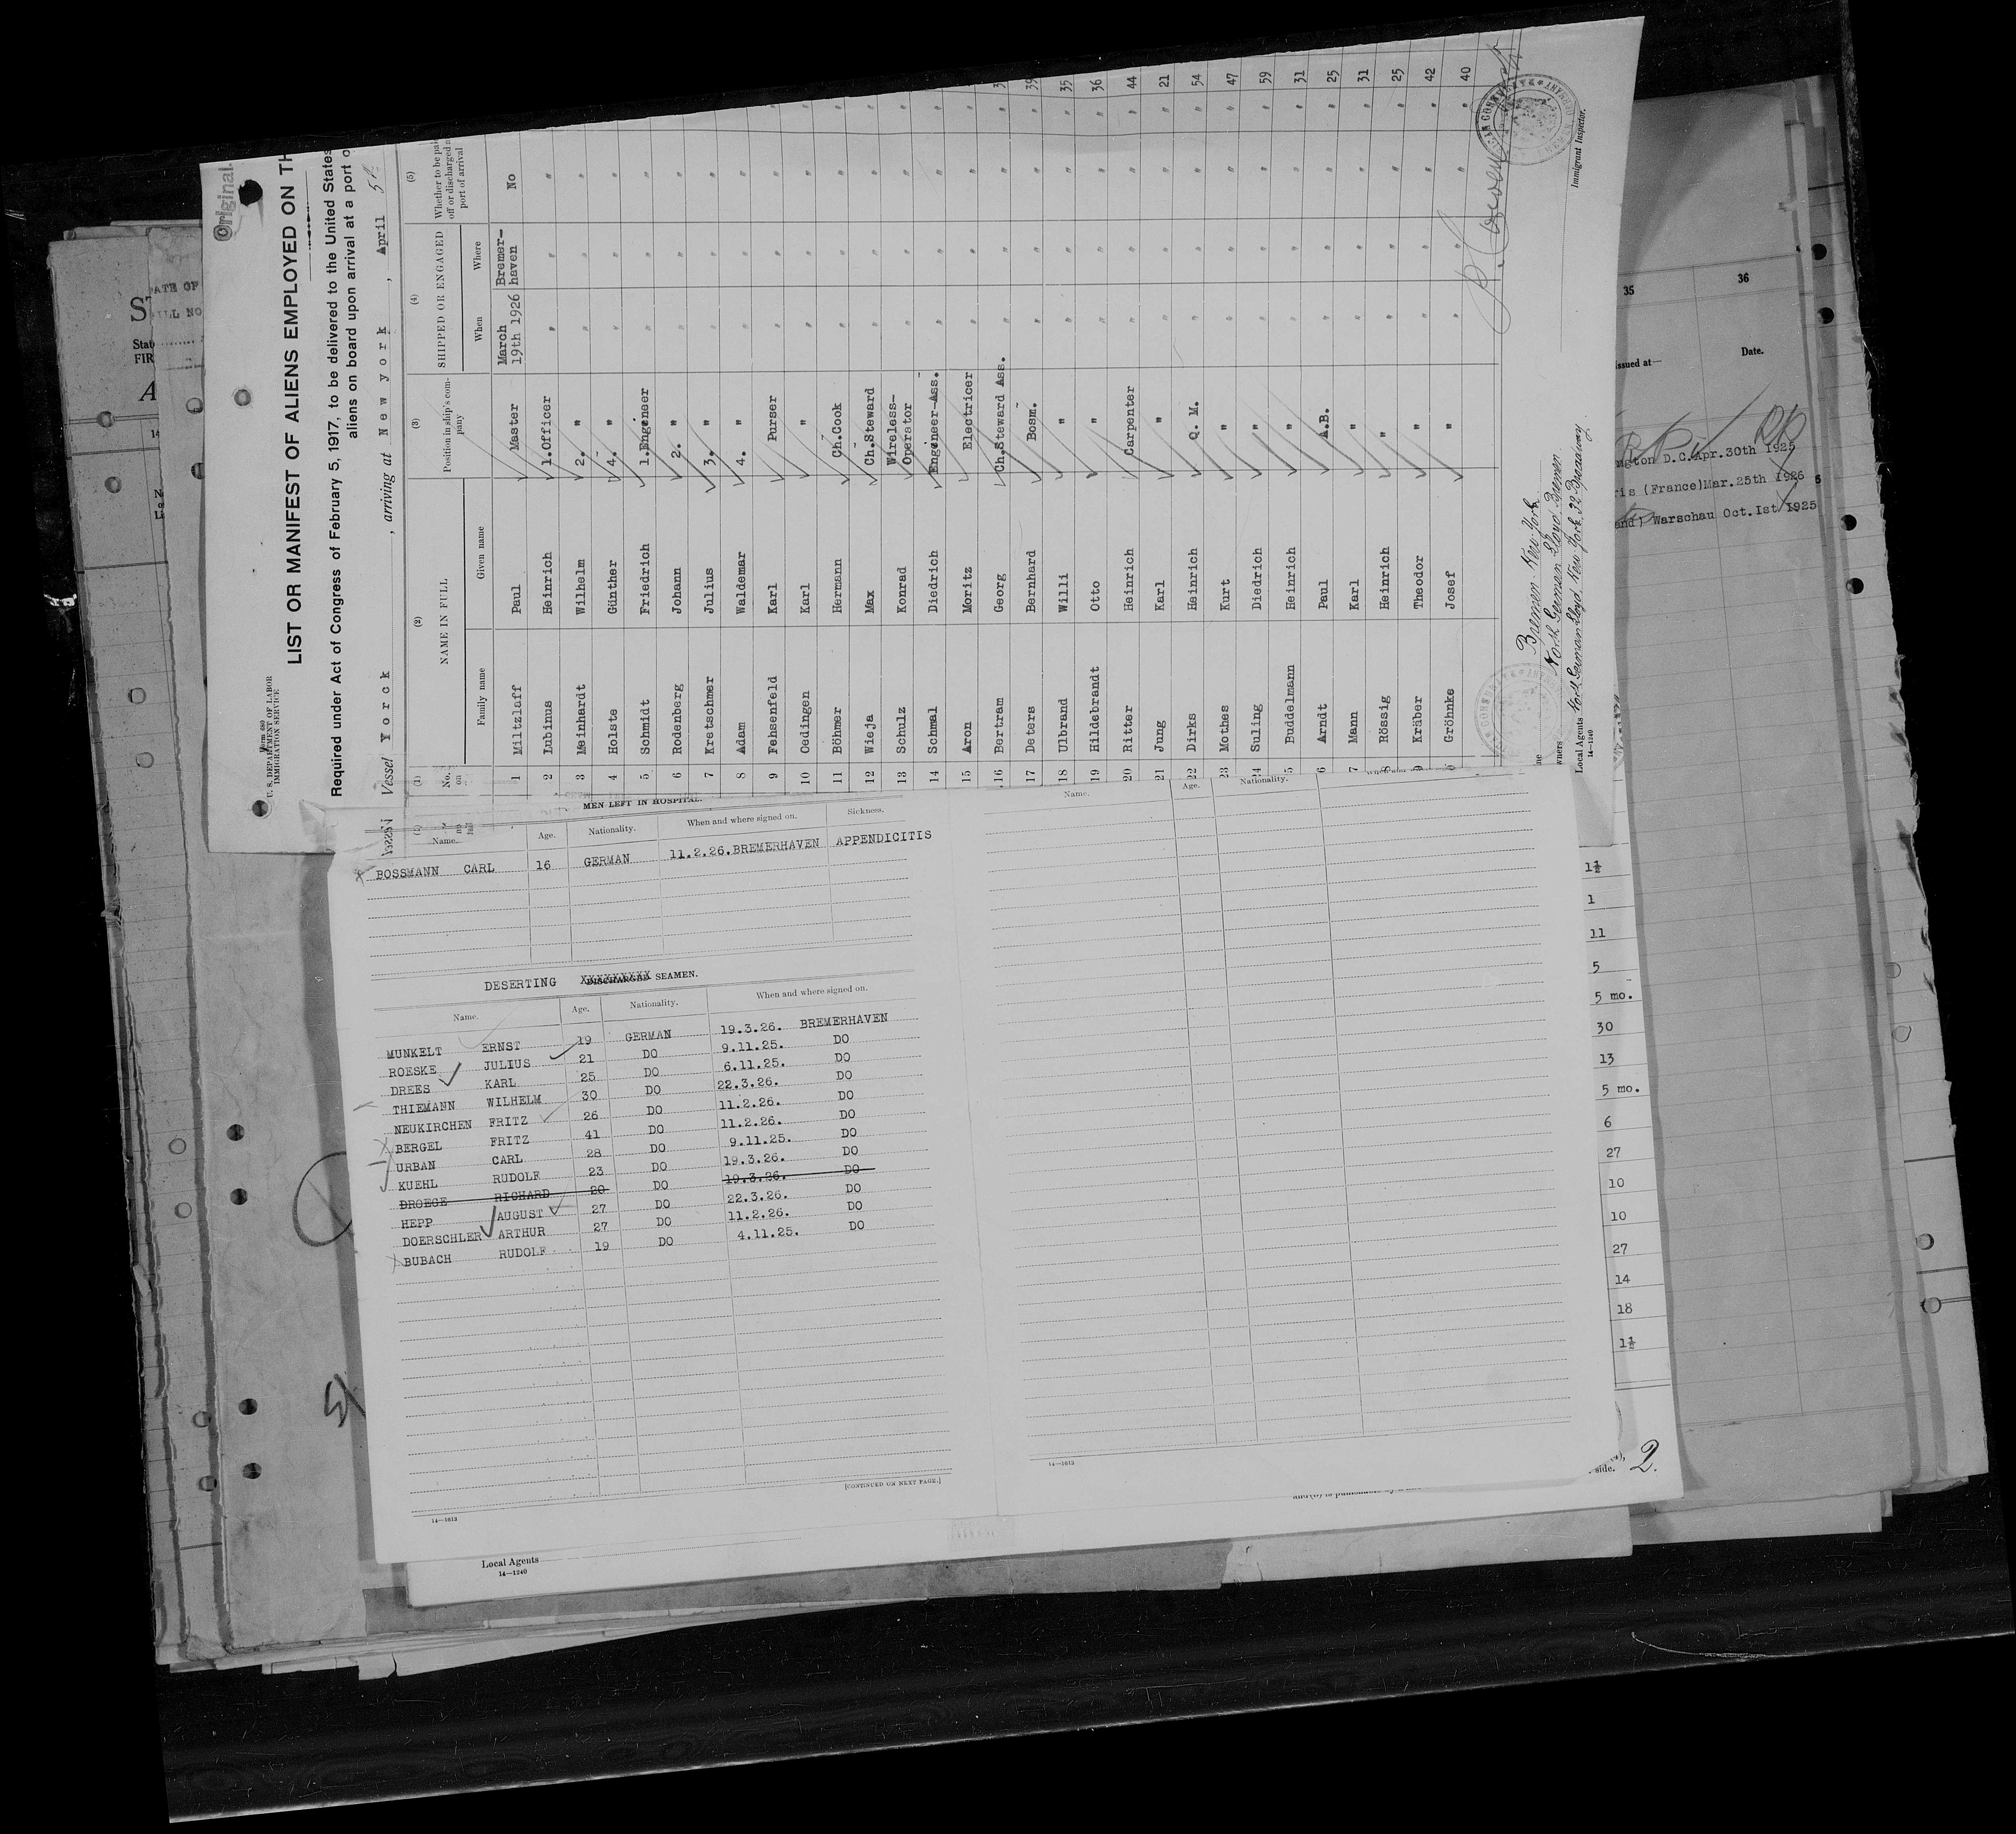 Original.
Form 680
U. S. DEPARTMENT OF LABOR
IMMIGRATION SERVICE
LIST OR MANIFEST OF ALIENS EMPLOYED ON TH
Required under Act of Congress of February 5, 1917, to be delivered to the United States
aliens on board upon arrival at a port o
Vessel Yorck , arriving at New york , April 5
(1) (2) (3) (4) (5)
No. on NAME IN FULL Position in ship's company SHIPPED OR ENGAGED Whether to be pai off or discharged a port of arrival
Family name Given name When Where
1 Miltzlaff Paul Master March 19th 1926 Bremerhaven No
2 Lubinus Heinrich 1.Officer " " " "
3 Meinhardt Wilhelm 2. " " " " "
4 Holste Günther 4. " " " " "
5 Schmidt Friedrich 1.Engeneer " " " "
6 Rodenberg Johann 2. " " " " "
7 Kretschmer Julius 3. " " " " "
8 Adam Waldemar 4. " " " " "
9 Fehsenfeld Karl Purser " " " "
10 Oedingen Karl " " " " "
11 Böhmer Hermann Ch.Cook " " " "
12 Wieja Max Ch.Steward " " " "
13 Schulz Konrad Wireless-Operator " " " "
14 Schmal Diedrich Engeneer-Ass. " " " "
15 Aron Moritz Electricer " " " "
16 Bertram Georg Ch.Steward Ass. " " " " 3
17 Deters Bernhard Bosm. " " " " 39
18 Ulbrand Willi " " " " " 35
19 Hildebrandt Otto " " " " " 36
20 Ritter Heinrich Carpenter " " " " 44
21 Jung Karl " " " " " 21
22 Dirks Heinrich Q. M. " " " " 54
23 Mothes Kurt " " " " " 47
24 Suling Diedrich " " " " " 59
5 Buddelmann Heinrich " " " " " 31
6 Arndt Paul A.B. " " " " 25
7 Mann Karl " " " " " 31
8 Rössig Heinrich " " " " " 25
9 Kräber Theodor " " " " " 42
Gröhnke Josef " " " " " 40
Bremen - New York
wners North German Lloyd, Bremen
Local Agents North German Lloyd, New York, 32 Broadway
14—1240
Immigrant Inspector.
MEN LEFT IN HOSPITAL.
Name. Age. Nationality. When and where signed on. Sickness.
BOSSMANN CARL 16 GERMAN 11.2.26. BREMERHAVEN APPENDICITIS
DESERTING DISCHARGED SEAMEN.
Name. Age. Nationality. When and where signed on.
MUNKELT ERNST 19 GERMAN 19.3.26. BREMERHAVEN
ROESKE JULIUS 21 DO 9.11.25. DO
DREES KARL 25 DO 6.11.25. DO
THIEMANN WILHELM 30 DO 22.3.26. DO
NEUKIRCHEN FRITZ 26 DO 11.2.26. DO
BERGEL FRITZ 41 DO 11.2.26. DO
URBAN CARL 28 DO 9.11.25. DO
KUEHL RUDOLF 23 DO 19.3.26. DO
DROEGE RICHARD 20 DO 19.3.26. DO
HEPP AUGUST 27 DO 22.3.26. DO
DOERSCHLER ARTHUR 27 DO 11.2.26. DO
BUBACH RUDOLF 19 DO 4.11.25. DO
[CONTINUED ON NEXT PAGE.]
14—1613
Name. Age. Nationality.
14—1613
Local Agents
14—1240
35 36
issued at— Date.
ngton D.C. Apr.30th 1925
ris (France) Mar.25th 1926
and) Warschau Oct.1st 1925
1½
1
11
5
5 mo.
30
13
5 mo.
6
27
10
10
27
14
18
1½
side. 2.